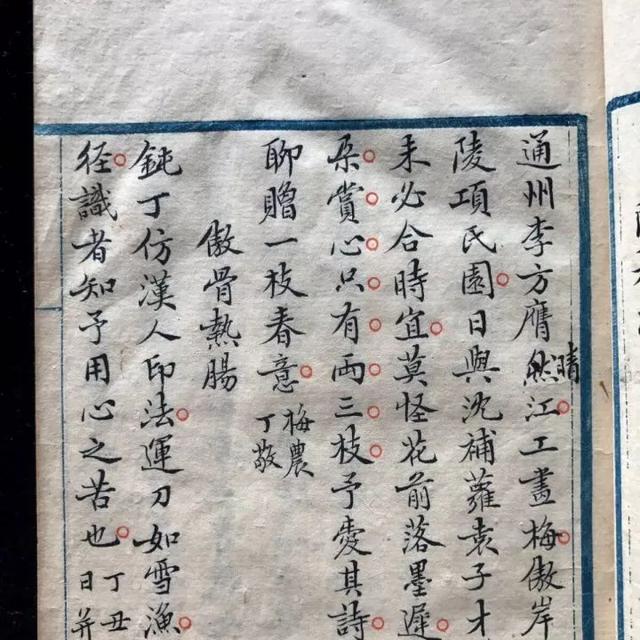 通州李方膺晴江工畫梅傲岸
陵項氏園日與沈補蘿袁子才
未必合時宜莫怪花前落墨遲
朵賞心只有兩三枝予愛其詩
聊贈一枝春意梅農丁敬
傲骨熱腸
鈍丁仿漢人印法運刀如雪漁
徑識者知予用心之苦也丁丑
日并